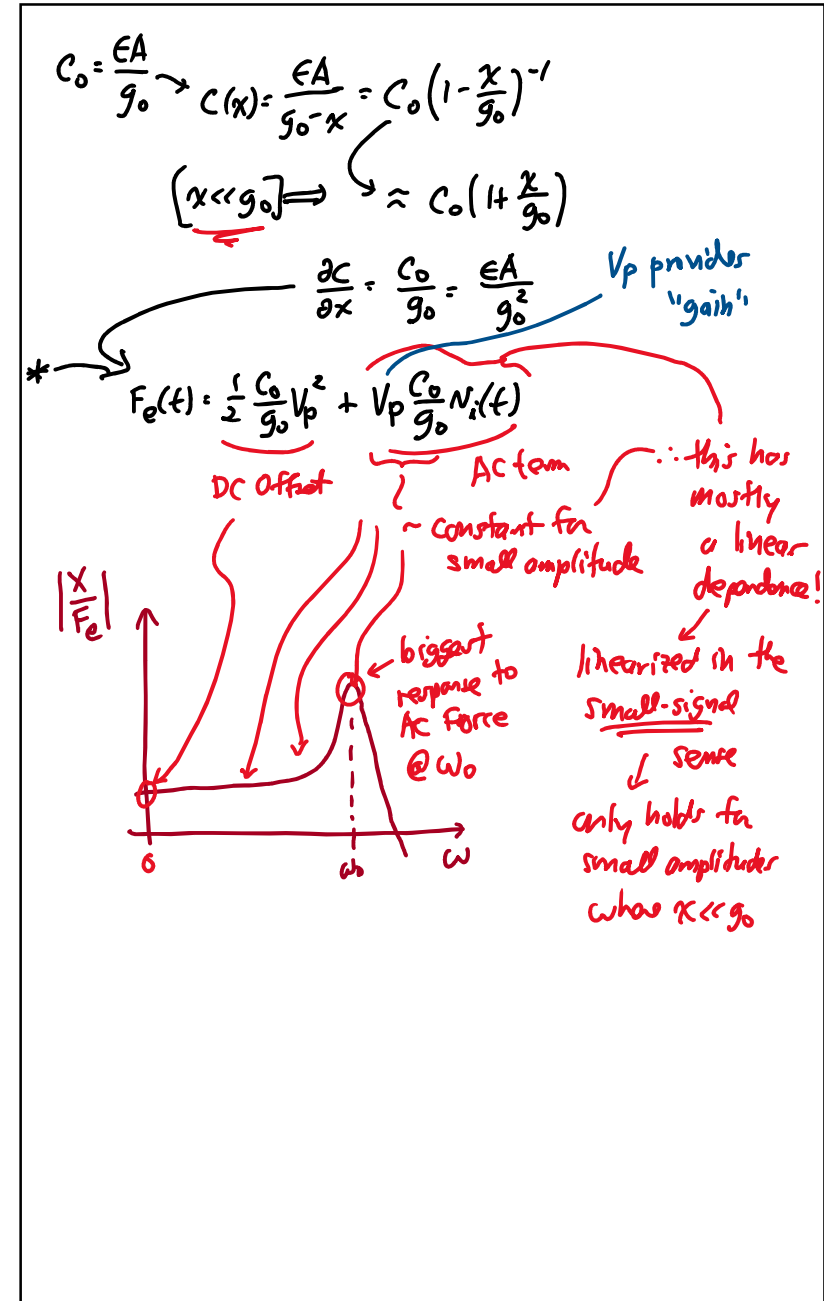 C₀ = εA/g₀ → C(x) = εA/(g₀-x) = C₀(1 - x/g₀)⁻¹
[x << g₀] ⟹ ≈ C₀(1 + x/g₀)
∂C/∂x = C₀/g₀ = εA/g₀²
Vp provides
"gain"
* → Fₑ(t) = 1/2 C₀/g₀ Vp² + Vp C₀/g₀ vᵢ(t)
DC Offset
AC term
~ constant for
small amplitude
∴ this has
mostly
a linear
dependance!
linearized in the
small-signal
sense
only holds for
small amplitudes
where x << g₀
|X/Fₑ|
biggest
response to
AC Force
@ ω₀
0
ω₀
ω